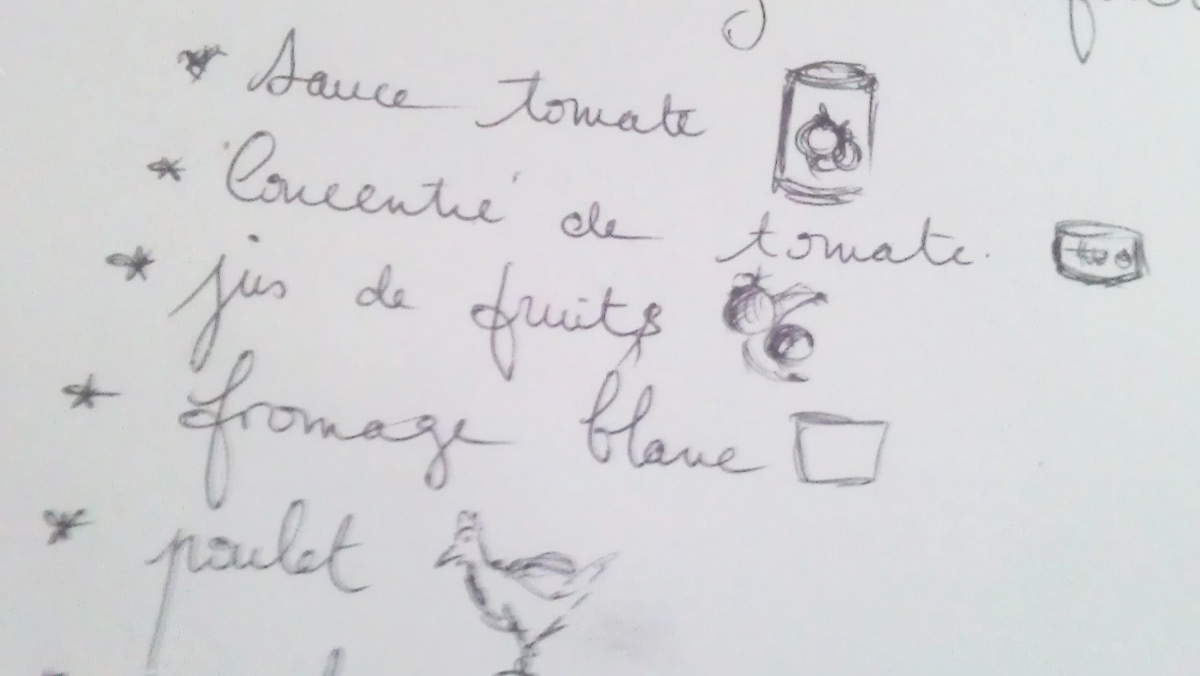 * Sauce tomate
* Concentré de tomate.
* jus de fruits
* fromage blanc
* poulet